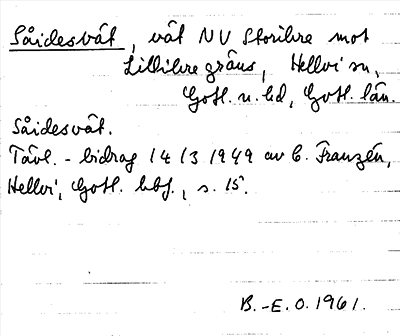 Såidesvät, vät NV Storihre mot
Lillihre gräns, Hellvi sn,
Gotl. n. hd, Gotl. län.
Såidesvät.
Tävl.-bidrag 14/3 1949 av C. Franzén,
Hellvi, Gotl. hbf., s. 15.
B.-E.O. 1961.